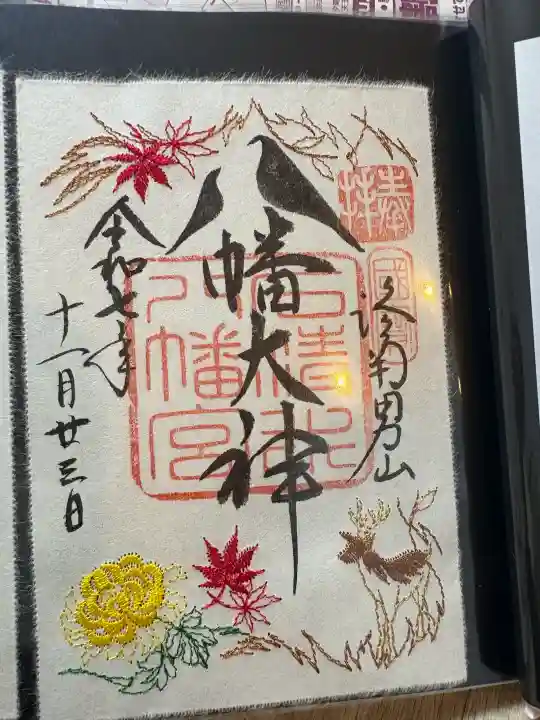 奉拝
洛南男山
八幡大神
石清水
八幡宮
令和七年
十一月廿三日